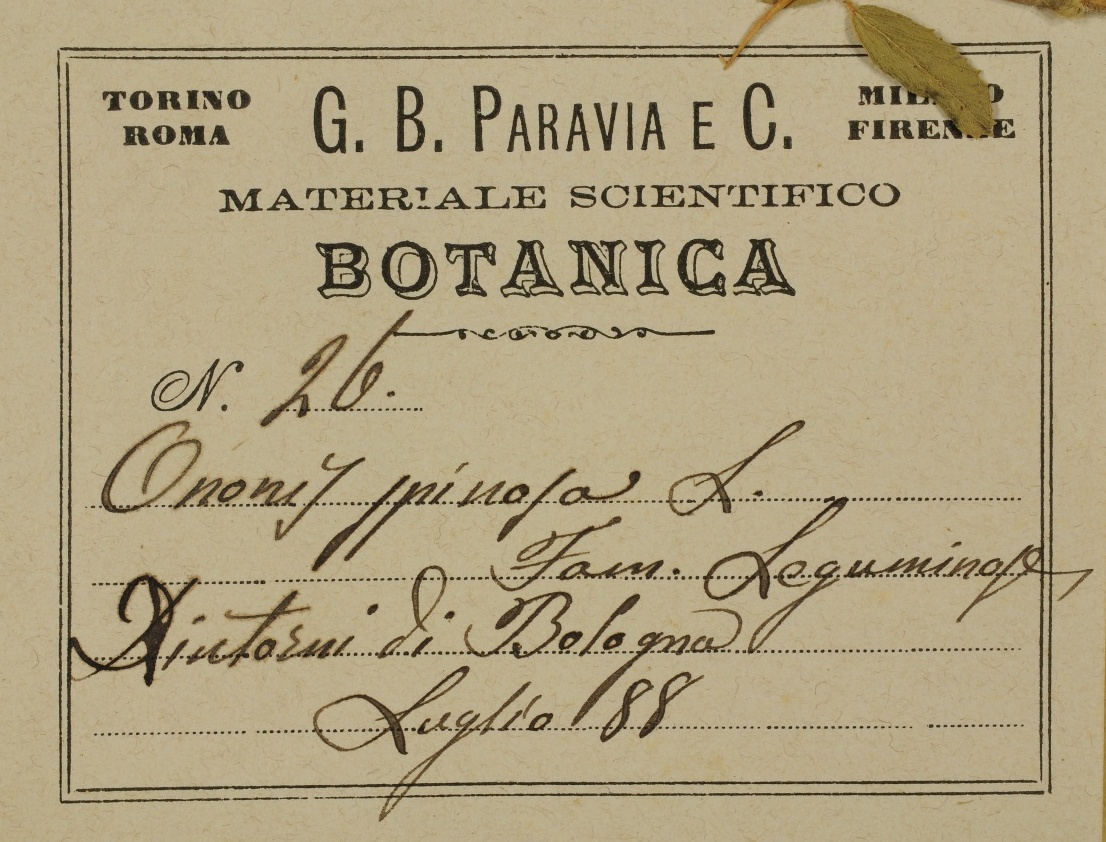 TORINO
ROMA
G. B. PARAVIA E C.
MILANO
FIRENZE
MATERIALE SCIENTIFICO
BOTANICA
N. 26.
Ononis spinosa L.
Fam. Leguminose
Dintorni di Bologna
Luglio 88